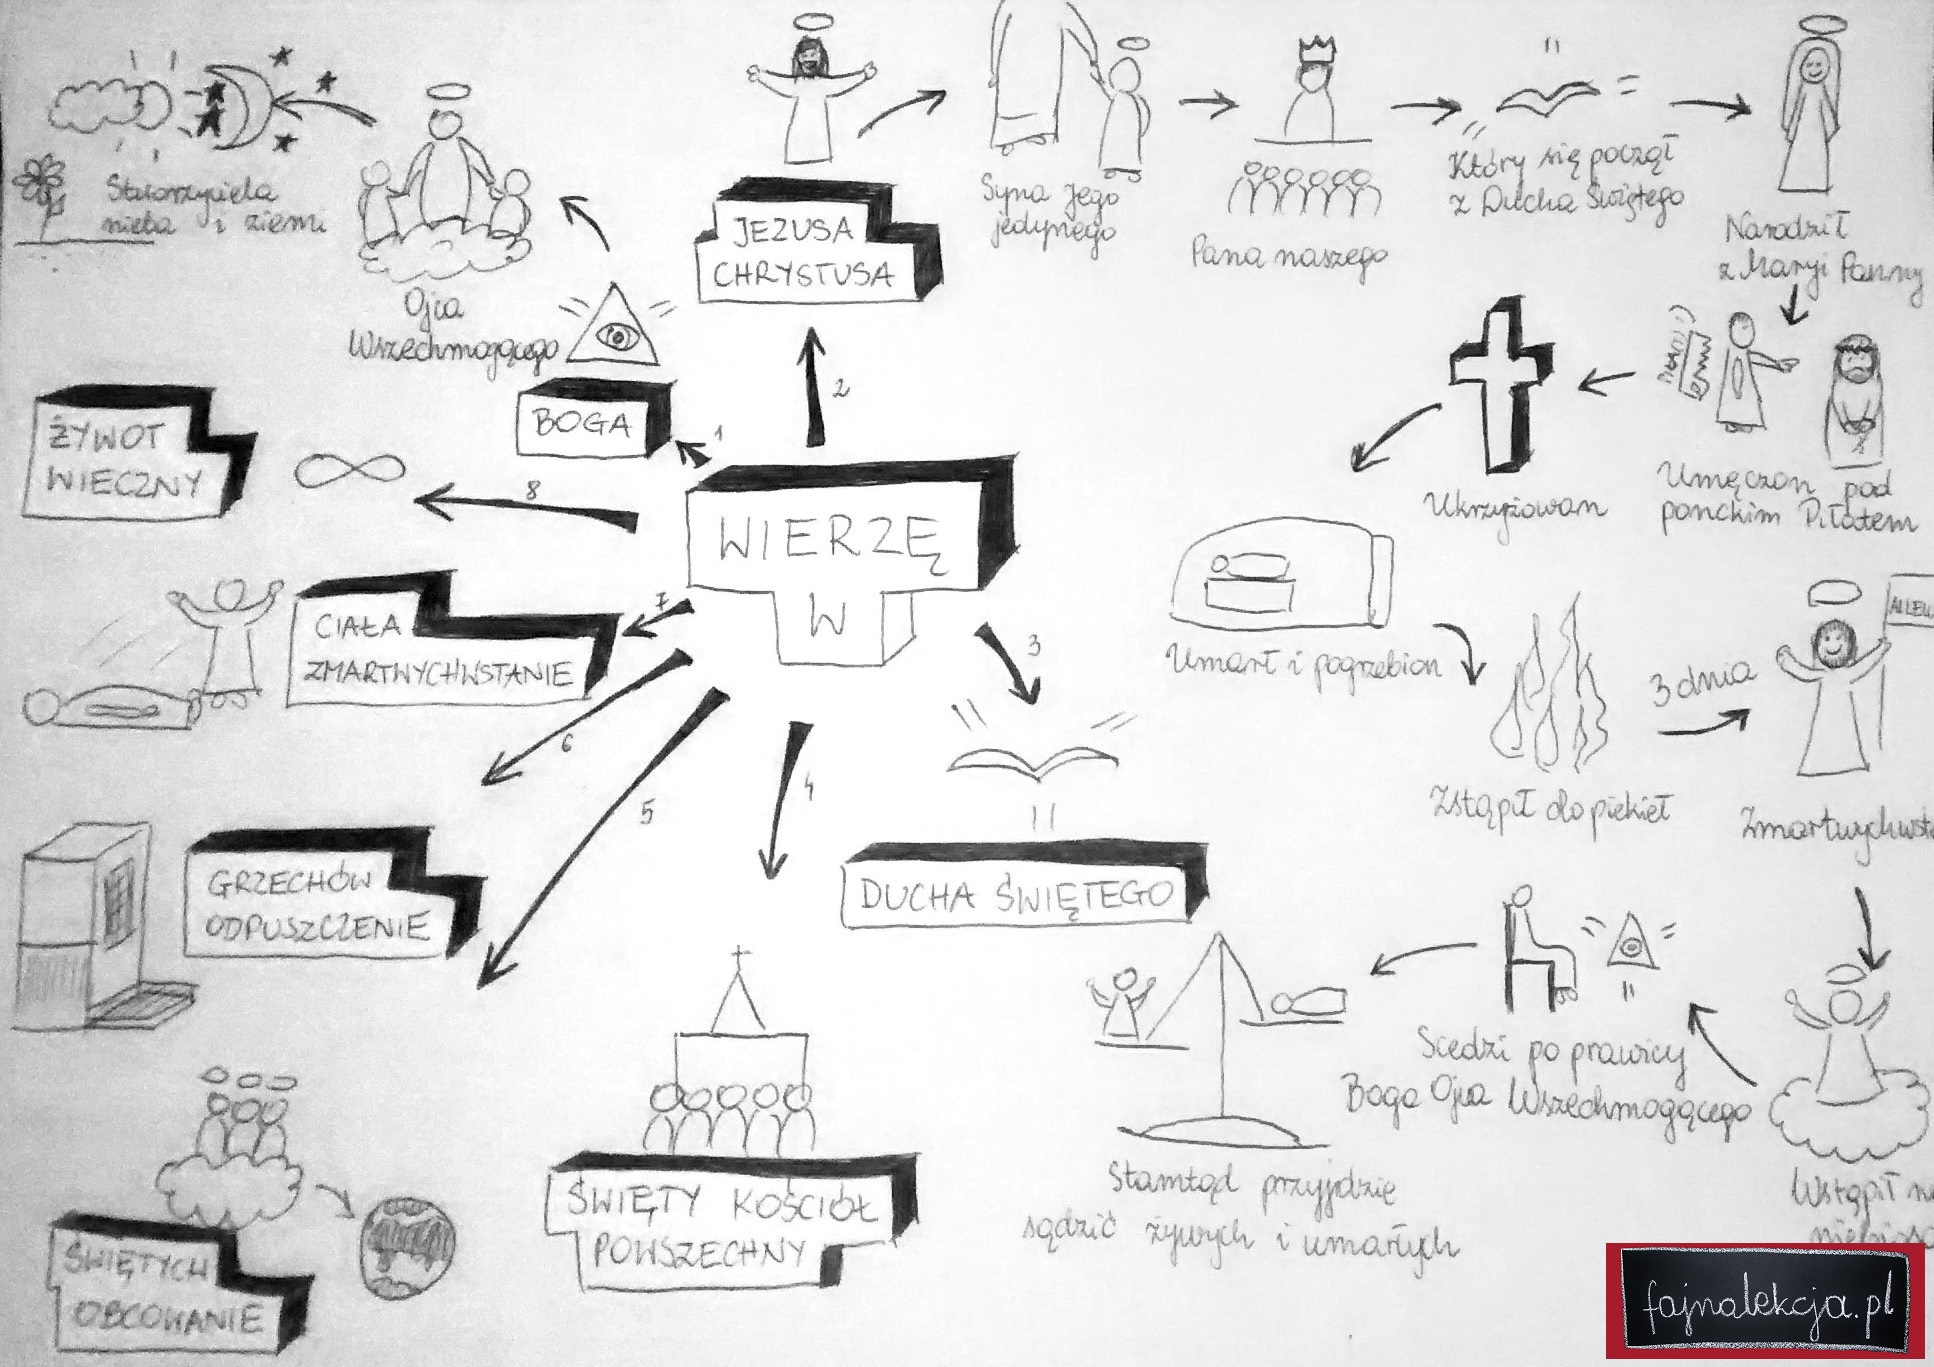 WIERZĘ
W
1
BOGA
Ojca
Wszechmogącego
Stworzyciela
nieba i ziemi
2
JEZUSA
CHRYSTUSA
Syna Jego
jedynego
Pana naszego
Który się począł
z Ducha Świętego
Narodził
z Maryi Panny
Umęczon pod
ponckim Piłatem
Ukrzyżowan
Umarł i pogrzebion
Zstąpił do piekieł
3 dnia
ALLEL
Zmartwychwsta
Wstąpił na
niebiosa
Siedzi po prawicy
Boga Ojca Wszechmogącego
Stamtąd przyjdzie
sądzić żywych i umarłych
3
DUCHA ŚWIĘTEGO
4
ŚWIĘTY KOŚCIÓŁ
POWSZECHNY
5
ŚWIĘTYCH
OBCOWANIE
6
GRZECHÓW
ODPUSZCZENIE
7
CIAŁA
ZMARTWYCHWSTANIE
8
ŻYWOT
WIECZNY
fajnalekcja.pl